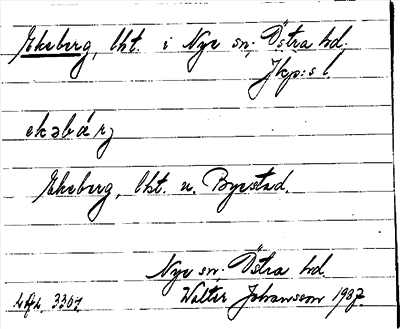 Ekeberg, lht. i Nye sn; Östra hd.
Jkp:s l.
ekəbárj
Ekeberg, lht. u. Byestad.
Nye sn; Östra hd.
Walter Johansson 1937.
3367.